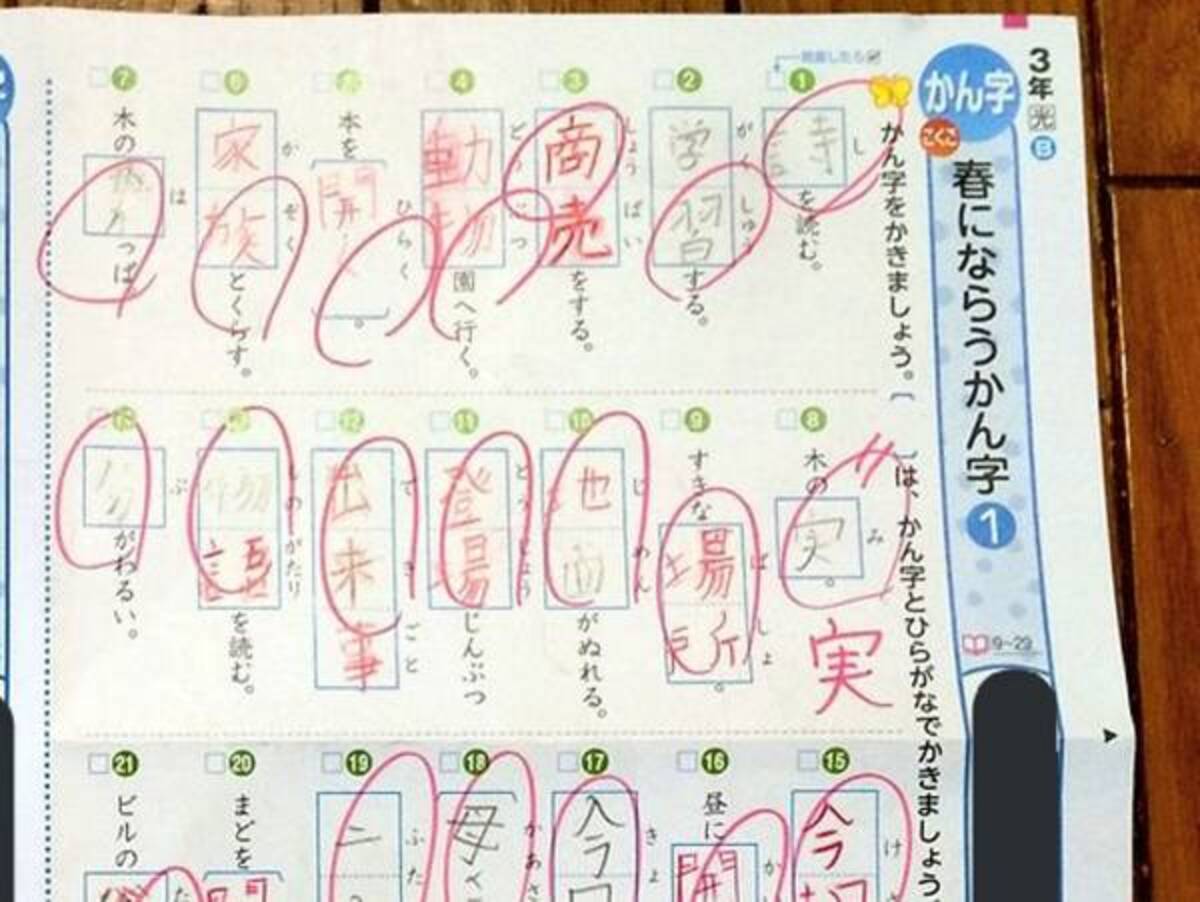 3年 光 B
かん字
こくご
春にならうかん字 1
9~29
かん字をかきましょう。〔 〕は、かん字とひらがなでかきましょう
1 詩を読む。 し
2 学習する。 がくしゅう
3 商売をする。 しょうばい
4 動物園へ行く。 どうぶつ
5 本を開く。 ひらく
6 家族とくらす。 かぞく
7 木の葉っぱ は
8 木の実。 み
実
9 すきな場所。 ばしょ
10 地面がぬれる。 じめん
11 登場じんぶつ とうじょう
12 出来事 できごと
13 物語を読む。 ものがたり
がわるい。 ぶ
15 今 け
16 昼に開 か
17 今 きょ
18 母 かあさ
19 二 ふた
20 まどを開
21 ビルの た